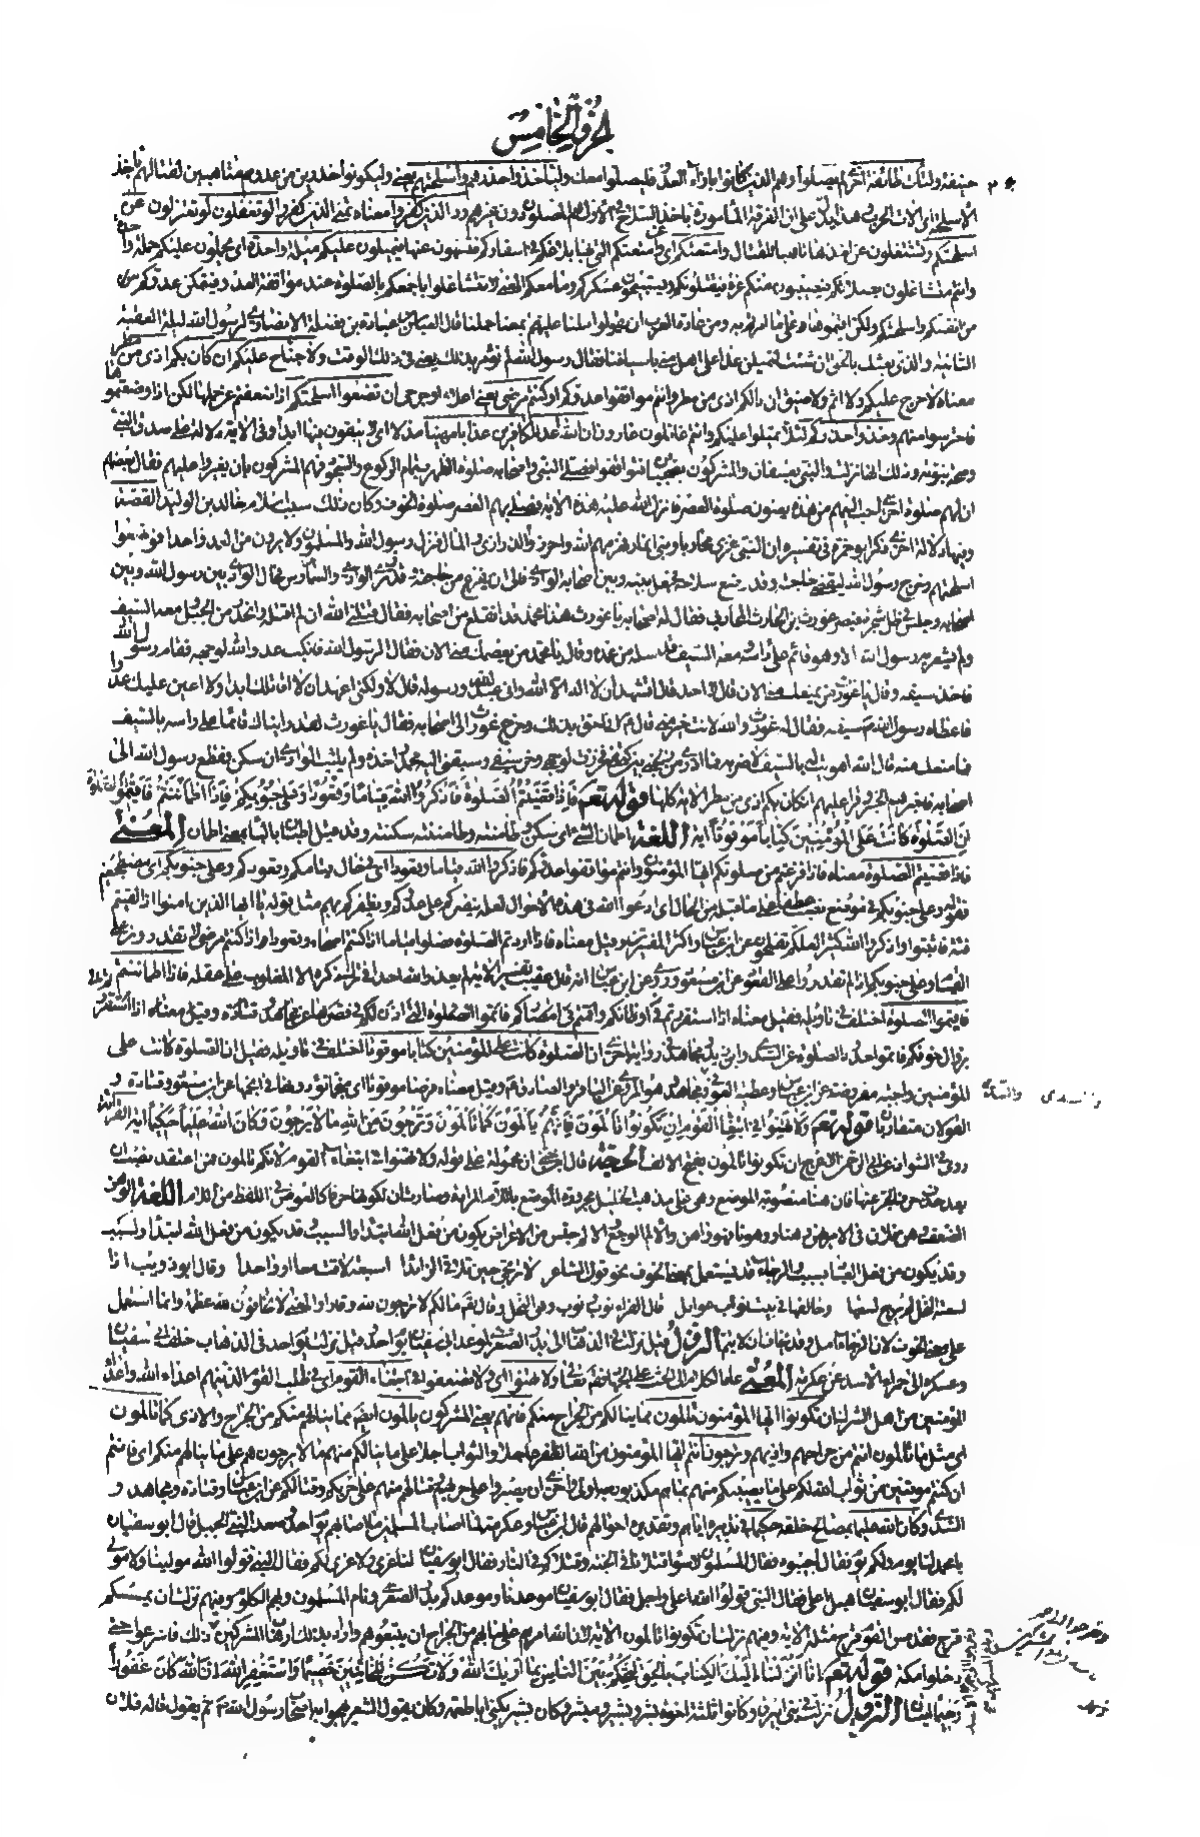 الجزؤ الخامس
حنيفة ولتأت طائفة اخرى لم يصلوا وهم الذين كانوا بازاء العدو فليصلوا معك وليأخذوا حذرهم واسلحتهم يعنى وليكونوا حذرين من عدوهم متاهبين لقتالهم باخذ
الاسلحة اى آلات الحرب وهذا يدل على ان الفرقة المأمورة باخذ السلاح فى الاول هم المصلون دون غيرهم ود الذين كفروا معناه تمنى الذين كفروا لو تغفلون لو تعتزلون عن
اسلحتكم وتشتغلون عن اخذها تأهبا للقتال وامتعتكم اى وعن امتعتكم التى بها بلاغكم فى اسفاركم فتسهون عنها فيميلون عليكم ميلة واحدة اى يحملون عليكم حملة واحدة
وانتم متشاغلون بصلاتكم فيصيبون منكم غرة فيقتلونكم ويستبيحون عسكركم وما معكم المعنى لا تتشاغلوا باجمعكم بالصلوة عند مواقفة العدو فيتمكن عدوكم من
من انفسكم واسلحتكم ولكن اقيموها وعلى ما امرتم به ومن عادة العرب ان يقولوا ملنا عليهم بمعنا حملنا قال العباس بن عبادة بن نضلة الانصارى لرسول الله ليلة العقبة
الثانية والذى بعثك بالحق ان شئت لنميلن غدا على اهل منى باسيافنا فقال رسول الله لم نؤمر بذلك يعنى فى ذلك الوقت ولا جناح عليكم ان كان بكم اذى من مطر
معناه لا حرج عليكم ولا اثم ولا ضيق ان نالكم اذى من مطر وانتم مواقفوا عدوكم او كنتم مرضى يعنى اعلاء او جرحى ان تضعوا اسلحتكم اذا ضعفتم عن حملها لكن اذا وضعتموها
فاحترسوا منهم وخذوا حذركم لئلا يميلوا عليكم وانتم غافلون غارون ان الله اعد للكافرين عذابا مهينا مذلا اى يبقون فيها ابدا وفى الاية دلالة على صدق النبى
وصحة نبوته وذلك انها نزلت والنبى بعسفان والمشركون بضجنان فتواقفوا فصلى النبى واصحابه صلوة الظهر بتمام الركوع والسجود فهم المشركون بان يغيروا عليهم فقال بعضهم
ان لهم صلوة اخرى احب اليهم من هذه يعنون صلوة العصر فانزل الله عليه هذه الاية فصلى بهم العصر صلوة الخوف وكان ذلك سبب اسلام خالد بن الوليد القصة
وفيها دلالة اخرى ذكر ابو حمزة فى تفسيره ان النبى غزى محاربا وبنى انمار فهزمهم الله واحرزوا الذرارى والمال فنزل رسول الله والمسلمون ولا يرون من العدو احدا فوضعوا
اسلحتهم وخرج رسول الله ليقضى حاجته وقد وضع سلاحه فجعل بينه وبين اصحابه الوادى فالى ان يفرغ من حاجته وقد درء الوادى والسماء ترش فحال الوادى بين رسول الله وبين
اصحابه وجلس فى ظل شجرة فبصر به غورث بن الحارث المحاربى فقال له اصحابه يا غورث هذا محمد قد انقطع من اصحابه فقال قتلنى الله ان لم اقتله وانحدر من الجبل ومعه السيف
ولم يشعر به رسول الله الا وهو قائم على رأسه ومعه السيف قد سله من غمده وقال يا محمد من يعصمك منى الان فقال الرسول الله فانكب عدو الله لوجهه فقام رسول الله
فاخذ سيفه وقال يا غورث من يمنعك منى الان قال لا احد قال اتشهد ان لا اله الا الله وانى عبد الله ورسوله قال لا ولكنى اعهد ان لا اقاتلك ابدا ولا اعين عليك عدوا
فاعطاه رسول الله سيفه فقال له غورث والله لانت خير منى قال انى احق بذلك وخرج غورث الى اصحابه فقالوا يا غورث لقد رايناك قائما على راسه بالسيف
فما منعك منه قال الله اهويت له بالسيف لاضربه فما ادرى من زلخنى بين كتفى فخررت لوجهى وخر سيفى وسبقنى اليه محمد فاخذه ولم يلبث الوادى ان سكن فقطع رسول الله الى
اصحابه فاخبرهم الخبر وقرأ عليهم ان كان بكم اذى من مطر الاية كلها قوله تعم فاذا قضيتم الصلوة فاذكروا الله قياما وقعودا وعلى جنوبكم فاذا اطمأننتم فاقيموا الصلوة
ان الصلوة كانت على المؤمنين كتابا موقوتا آية اللغة اطمان الشىء اى سكن وطأمنته وطامنته سكنته وقد قيل اطبأن بالباء بمعنى اطمان المعنى
فاذا قضيتم الصلوة معناه فاذا فرغتم من صلوتكم ايها المؤمنون وانتم مواقفوا عدوكم فاذكروا الله قياما وقعودا اى فى حال قيامكم وقعودكم وعلى جنوبكم اى مضطجعين
فقوله وعلى جنوبكم فى موضع نصب عطفا على ما قبله من الحال اى ادعوا الله فى هذه الاحوال لعله ينصركم على عدوكم ويظفركم بهم مثل قوله يا ايها الذين امنوا اذا لقيتم
فئة فاثبتوا واذكروا الله كثيرا لعلكم تفلحون عن ابن عباس واكثر المفسرين وقيل معناه فاذا اردتم الصلوة فصلوا قياما اذا كنتم اصحاء وقعودا اذا كنتم مرضى لا تقدرون على
القيام وعلى جنوبكم اذا لم تقدروا على القعود عن ابن مسعود وروى عن ابن عباس انه قال عقيب تفسير الاية لم يعذر الله احدا فى ترك ذكره الا المغلوب على عقله فاذا اطمأننتم
فاقيموا الصلوة اختلف فى تاويله فقيل معناه اذا استقررتم فى اوطانكم واقمتم فى امصاركم فاتموا الصلوة التى اذن لكم فى قصرها عن مجاهد وقتادة وقيل معناه اذا استقررتم
بزوال خوفكم فاتموا حدود الصلوة عن السدى وابن زيد ومجاهد فى رواية اخرى ان الصلوة كانت على المؤمنين كتابا موقوتا اختلف فى تاويله فقيل ان الصلوة كانت على
المؤمنين واجبة مفروضة عن ابن عباس وعطية العوفى ومجاهد وهو المروى عن الباقر والصادق ع وقيل معناه فرضا موقوتا اى منجما تؤدونها فى انجمها عن ابن مسعود وقتادة و
القولان متقاربان قوله تعم ولا تهنوا فى ابتغاء القوم ان تكونوا تألمون فانهم يألمون كما تألمون وترجون من الله ما لا يرجون وكان الله عليما حكيما آية القراءة
روى فى الشواذ عن عبد الرحمن الاعرج ان تكونوا تألمون بفتح الالف الحجة قال ابن جنى ان محمولة على قوله ولا تهنوا فى ابتغاء القوم لانكم تألمون فمن اعتقد نصب ان
بعد حذف حرف الجر عنها فان هنا منصوبة الموضع وهى على مذهب الخليل مجرورة الموضع باللام المرادة وصارت ان لكونها حرفا كالعوض فى اللفظ من اللام اللغة الوهن
الضعف وهن فلان فى الامر يهن وهنا ووهونا فهو واهن والالم الوجع والالم جنس من الاعراض يكون من فعل الله ابتداء وبالسبب وقد يكون من فعل الله ابتداء ولسبب
وقد يكون من فعل العباد بسبب والرجاء قد يستعمل بمعنى الخوف نحو قول الشاعر لا ترتجى حين تلاقى الزائدا اسبعة لاقت معا او واحدا وقال ابو ذويب اذا
لسعته النحل لم يرج لسعها وخالفها فى بيت نوب عوامل قال الفراء نوب ونوب وهو النحل وقال تعم مالكم لا ترجون لله وقارا والمعنى لا تخافون لله عظمة وانما استعمل
على معنى الخوف لان الرجاء امل وقد يخاف ان لا يتم النزول قيل نزلت فى الذهاب الى بدر الصغرى لموعد ابى سفيان يوم احد وقيل نزلت يوم احد فى الذهاب خلف ابى سفيان
وعسكره الى حمراء الاسد عن عكرمة المعنى عاد الكلام الى الحث على الجهاد فقال تعالى ولا تهنوا اى ولا تضعفوا فى ابتغاء القوم اى فى طلب القوم الذين هم اعداء الله واعداء
المؤمنين من اهل الشرك ان تكونوا ايها المؤمنون تألمون مما ينالكم من الجراح منكم فانهم يعنى المشركون يألمون ايضا مما ينالهم منكم من الجراح والاذى كما تألمون
اى مثل ما تألمون انتم من جراحهم واذيهم وترجون انتم ايها المؤمنون من الله الظفر عاجلا والثواب اجلا على ما ينالكم منهم ما لا يرجون هم على ما ينالهم منكم اى فانتم
ان كنتم موقنين من ثواب الله لكم على ما يصيبكم منهم بما هم مكذبون به اولى واحرى ان تصبروا على حربهم وقتالهم منهم على حربكم وقتالكم عن ابن عباس وقتادة ومجاهد و
السدى وكان الله عليما بمصالح خلقه حكيما فى تدبيره اياهم وتقديره احوالهم قال ابن عباس وعكرمة لما اصاب المسلمين ما اصابهم يوم احد وصعد النبى الجبل قال ابو سفيان
يا محمد لنا يوم ولكم يوم فقال اجيبوه فقال المسلمون لا سواء قتلانا فى الجنة وقتلاكم فى النار فقال ابو سفيان لنا عزى ولا عزى لكم فقال النبى قولوا الله مولينا ولا مولى
لكم فقال ابو سفيان اعل هبل فقال النبى قولوا الله اعلى واجل فقال ابو سفيان موعدنا وموعدكم بدر الصغرى ونام المسلمون وبهم الكلوم وفيهم نزلت ان يمسسكم
قرح فقد مس القوم قرح مثله الاية وفيهم نزلت ان تكونوا تالمون الاية لان الله امرهم على ما بهم من الجراح ان يتبعوهم واراد بذلك ارهاب المشركين وذلك فاسرعوا حتى
دخلوا مكة قوله تعم انا انزلنا اليك الكتاب بالحق لتحكم بين الناس بما اريك الله ولا تكن للخائنين خصيما واستغفر الله ان الله كان غفورا
رحيما ايتان النزول نزلت فى بنى ابيرق وكانوا ثلثة اخوة بشر وبشير ومبشر وكان بشير يكنى ابا طعمة وكان يقول الشعر يهجو به اصحاب رسول الله ثم يقول قاله فلان